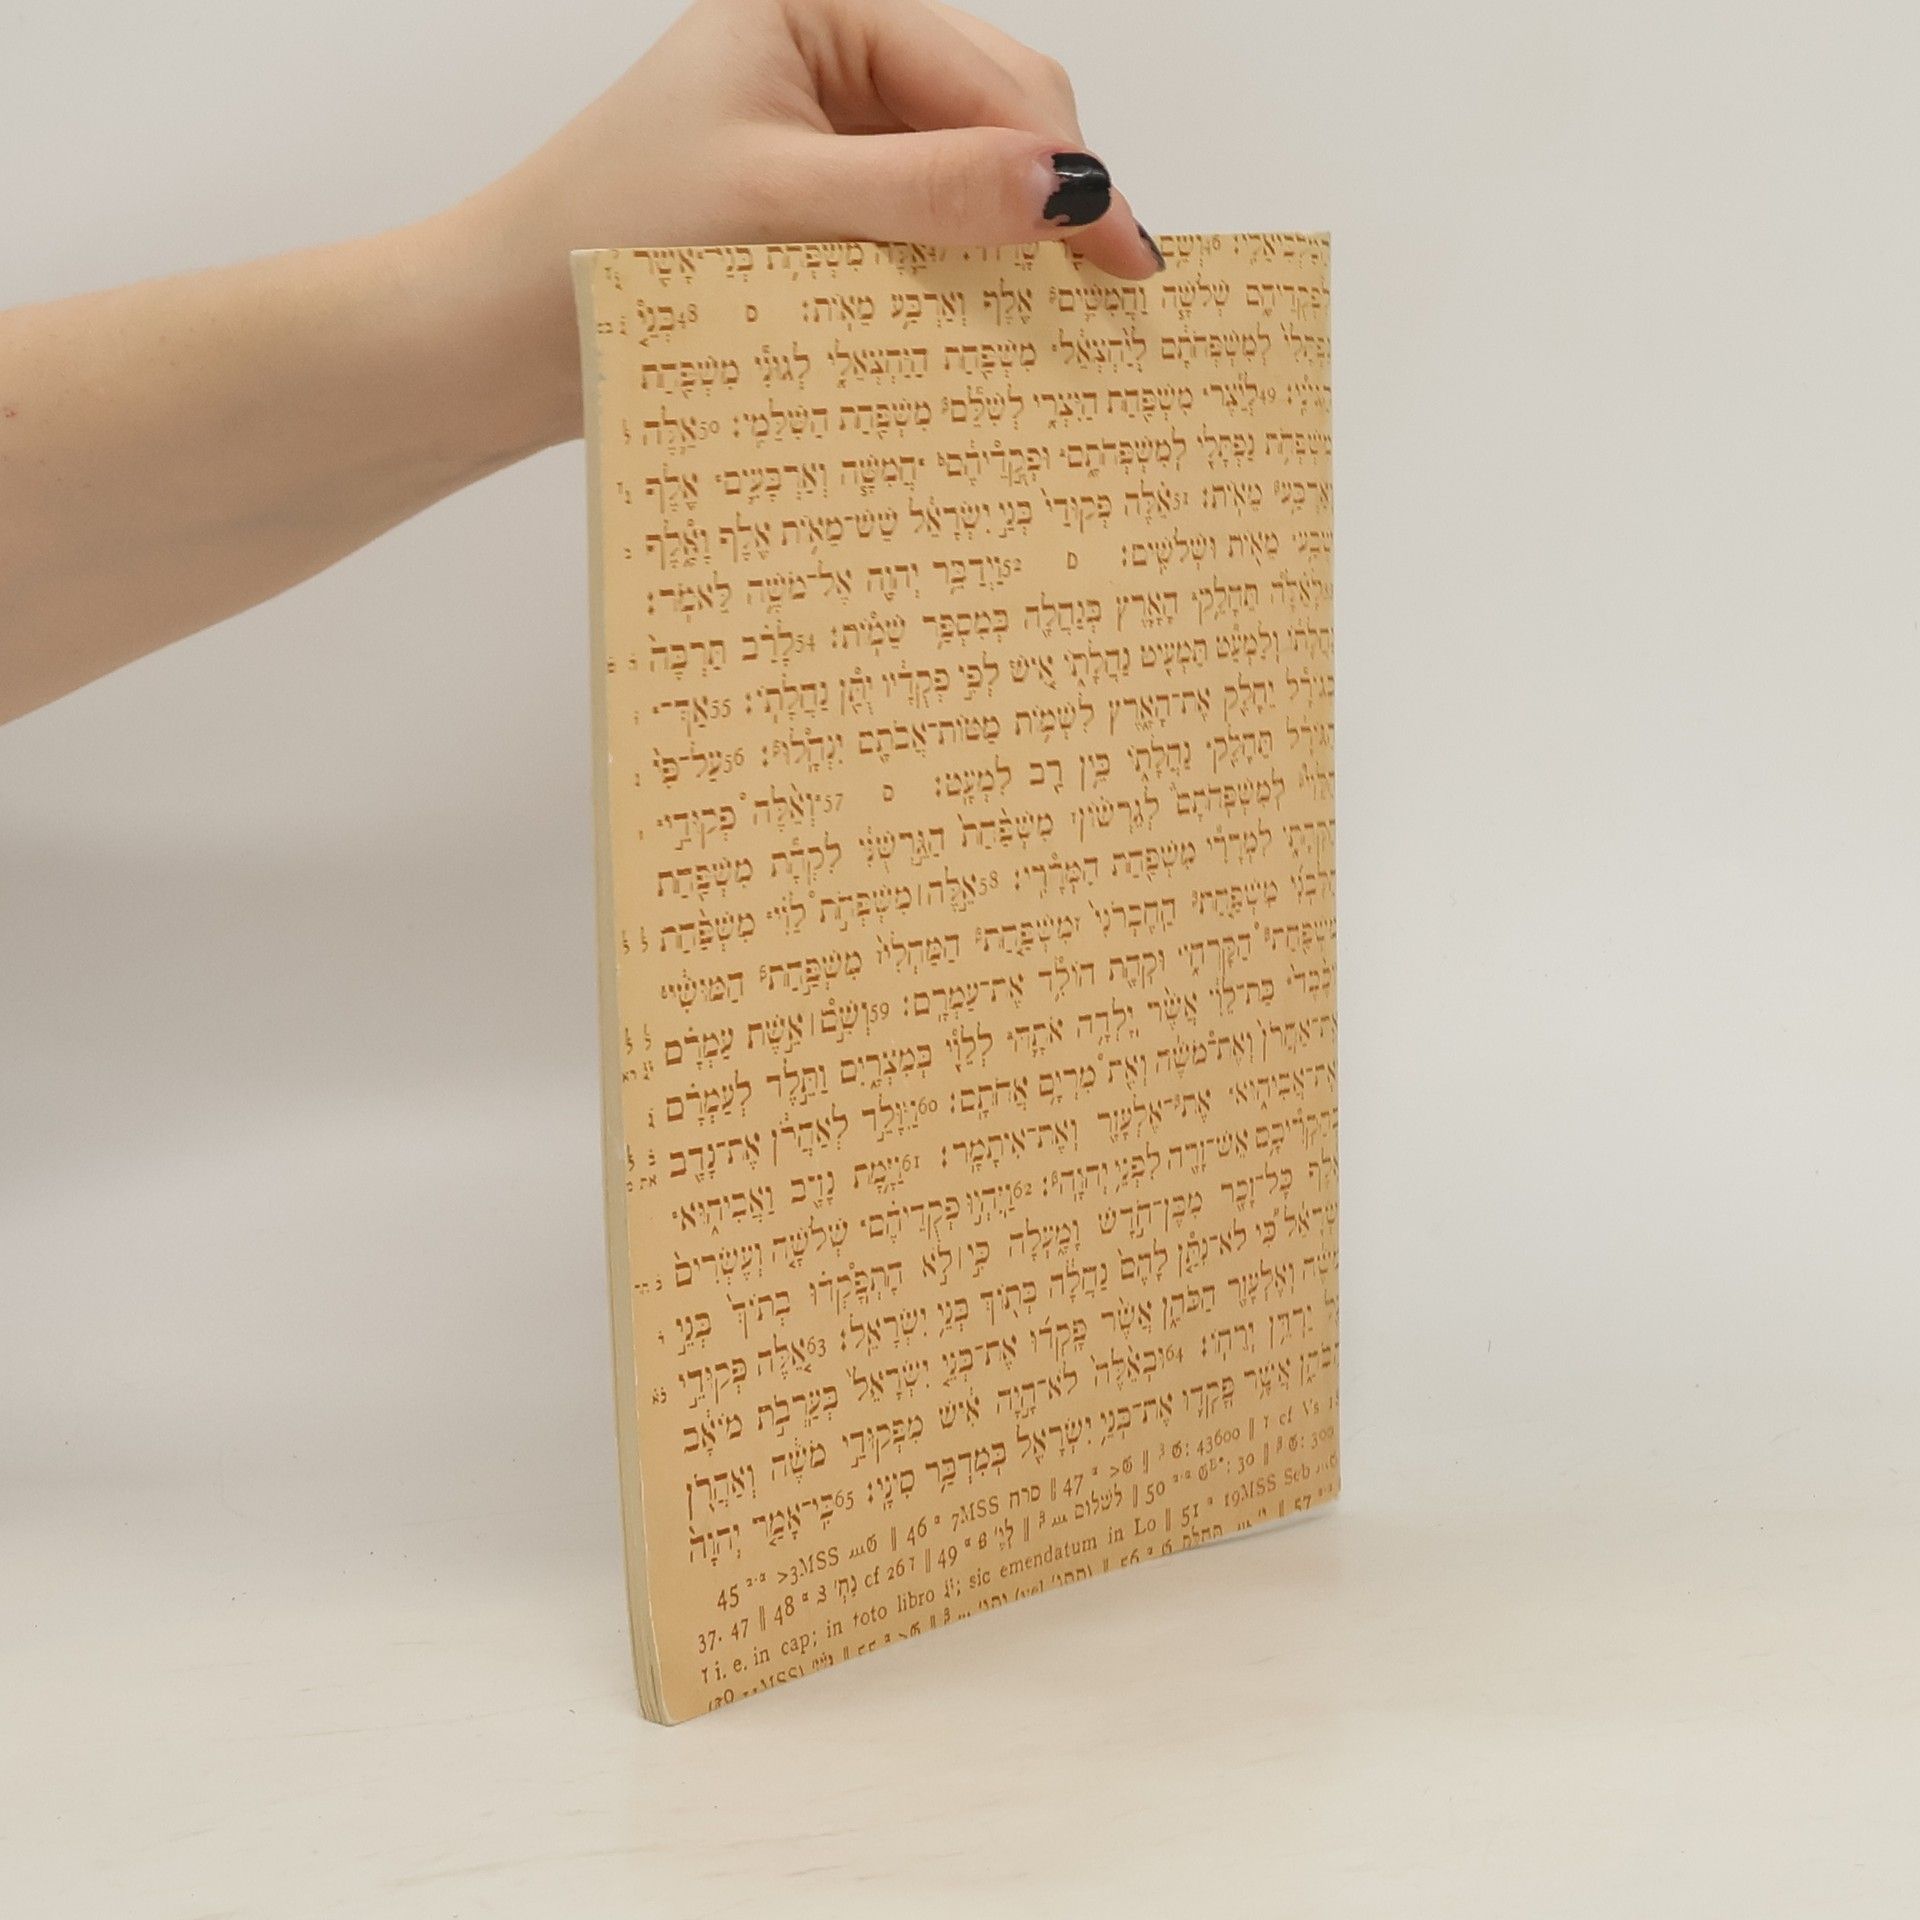 הַמַּלְכִּיאֵלִי: 46 וְשֵׁם שָׂרַח: 47 אֵלֶּה מִשְׁפְּחֹת בְּנֵי־אָשֵׁר
לִפְקֻדֵיהֶם שְׁלֹשָׁה וַחֲמִשִּׁים אֶלֶף וְאַרְבַּע מֵאוֹת: ס 48 בְּנֵי
נַפְתָּלִי לְמִשְׁפְּחֹתָם לְיַחְצְאֵל מִשְׁפַּחַת הַיַּחְצְאֵלִי לְגוּנִי מִשְׁפַּחַת
הַגּוּנִי: 49 לְיֵצֶר מִשְׁפַּחַת הַיִּצְרִי לְשִׁלֵּם מִשְׁפַּחַת הַשִּׁלֵּמִי: 50 אֵלֶּה
מִשְׁפְּחֹת נַפְתָּלִי לְמִשְׁפְּחֹתָם וּפְקֻדֵיהֶם חֲמִשָּׁה וְאַרְבָּעִים אֶלֶף
וְאַרְבַּע מֵאוֹת: 51 אֵלֶּה פְּקוּדֵי בְּנֵי יִשְׂרָאֵל שֵׁשׁ־מֵאוֹת אֶלֶף וָאָלֶף
שְׁבַע מֵאוֹת וּשְׁלֹשִׁים: ס 52 וַיְדַבֵּר יְהוָה אֶל־מֹשֶׁה לֵּאמֹר:
לָאֵלֶּה תֵּחָלֵק הָאָרֶץ בְּנַחֲלָה בְּמִסְפַּר שֵׁמוֹת: 54 לָרַב תַּרְבֶּה
נַחֲלָתוֹ וְלַמְעַט תַּמְעִיט נַחֲלָתוֹ אִישׁ לְפִי פְקֻדָיו יֻתַּן נַחֲלָתוֹ: 55 אַךְ־
בְּגוֹרָל יֵחָלֵק אֶת־הָאָרֶץ לִשְׁמוֹת מַטּוֹת־אֲבֹתָם יִנְחָלוּ: 56 עַל־פִּי
הַגּוֹרָל תֵּחָלֵק נַחֲלָתוֹ בֵּין רַב לִמְעָט: ס 57 וְאֵלֶּה פְקוּדֵי
הַלֵּוִי לְמִשְׁפְּחֹתָם לְגֵרְשׁוֹן מִשְׁפַּחַת הַגֵּרְשֻׁנִּי לִקְהָת מִשְׁפַּחַת
הַקְּהָתִי לִמְרָרִי מִשְׁפַּחַת הַמְּרָרִי: 58 אֵלֶּה ׀ מִשְׁפְּחֹת לֵוִי מִשְׁפַּחַת
הַלִּבְנִי מִשְׁפַּחַת הַחֶבְרֹנִי מִשְׁפַּחַת הַמַּחְלִי מִשְׁפַּחַת הַמּוּשִׁי
מִשְׁפַּחַת הַקָּרְחִי וּקְהָת הוֹלִד אֶת־עַמְרָם: 59 וְשֵׁם ׀ אֵשֶׁת עַמְרָם
יוֹכֶבֶד בַּת־לֵוִי אֲשֶׁר יָלְדָה אֹתָהּ לְלֵוִי בְּמִצְרָיִם וַתֵּלֶד לְעַמְרָם
אֶת־אַהֲרֹן וְאֶת־מֹשֶׁה וְאֵת מִרְיָם אֲחֹתָם: 60 וַיִּוָּלֵד לְאַהֲרֹן אֶת־נָדָב
וְאֶת־אֲבִיהוּא אֶת־אֶלְעָזָר וְאֶת־אִיתָמָר: 61 וַיָּמָת נָדָב וַאֲבִיהוּא
בְּהַקְרִיבָם אֵשׁ־זָרָה לִפְנֵי יְהוָה: 62 וַיִּהְיוּ פְקֻדֵיהֶם שְׁלֹשָׁה וְעֶשְׂרִים
אֶלֶף כָּל־זָכָר מִבֶּן־חֹדֶשׁ וָמָעְלָה כִּי ׀ לֹא הָתְפָּקְדוּ בְּתוֹךְ בְּנֵי
יִשְׂרָאֵל כִּי לֹא־נִתַּן לָהֶם נַחֲלָה בְּתוֹךְ בְּנֵי יִשְׂרָאֵל: 63 אֵלֶּה פְּקוּדֵי
מֹשֶׁה וְאֶלְעָזָר הַכֹּהֵן אֲשֶׁר פָּקְדוּ אֶת־בְּנֵי יִשְׂרָאֵל בְּעַרְבֹת מוֹאָב
עַל יַרְדֵּן יְרֵחוֹ: 64 וּבְאֵלֶּה לֹא־הָיָה אִישׁ מִפְּקוּדֵי מֹשֶׁה וְאַהֲרֹן
הַכֹּהֵן אֲשֶׁר פָּקְדוּ אֶת־בְּנֵי יִשְׂרָאֵל בְּמִדְבַּר סִינָי: 65 כִּי־אָמַר יְהוָה
45 α-α >3MSS ⅏𝔊 ‖ 46 α 7MSS סרח ‖ 47 α >𝔊 ‖ β 𝔊: 43600 ‖ γ cf Vs
37. 47 ‖ 48 α נח׳ cf 26 γ ‖ 49 α ‖ β ⅏ לשלום ‖ 50 α-α 𝔊B*: 30 ‖ β 𝔊: 300
γ i. e. in cap; in toto libro; sic emendatum in Lo ‖ 51 α 19MSS Seb
MSS ‖ 55 α >𝔊 ‖ β ‖ 56 α ‖ 57